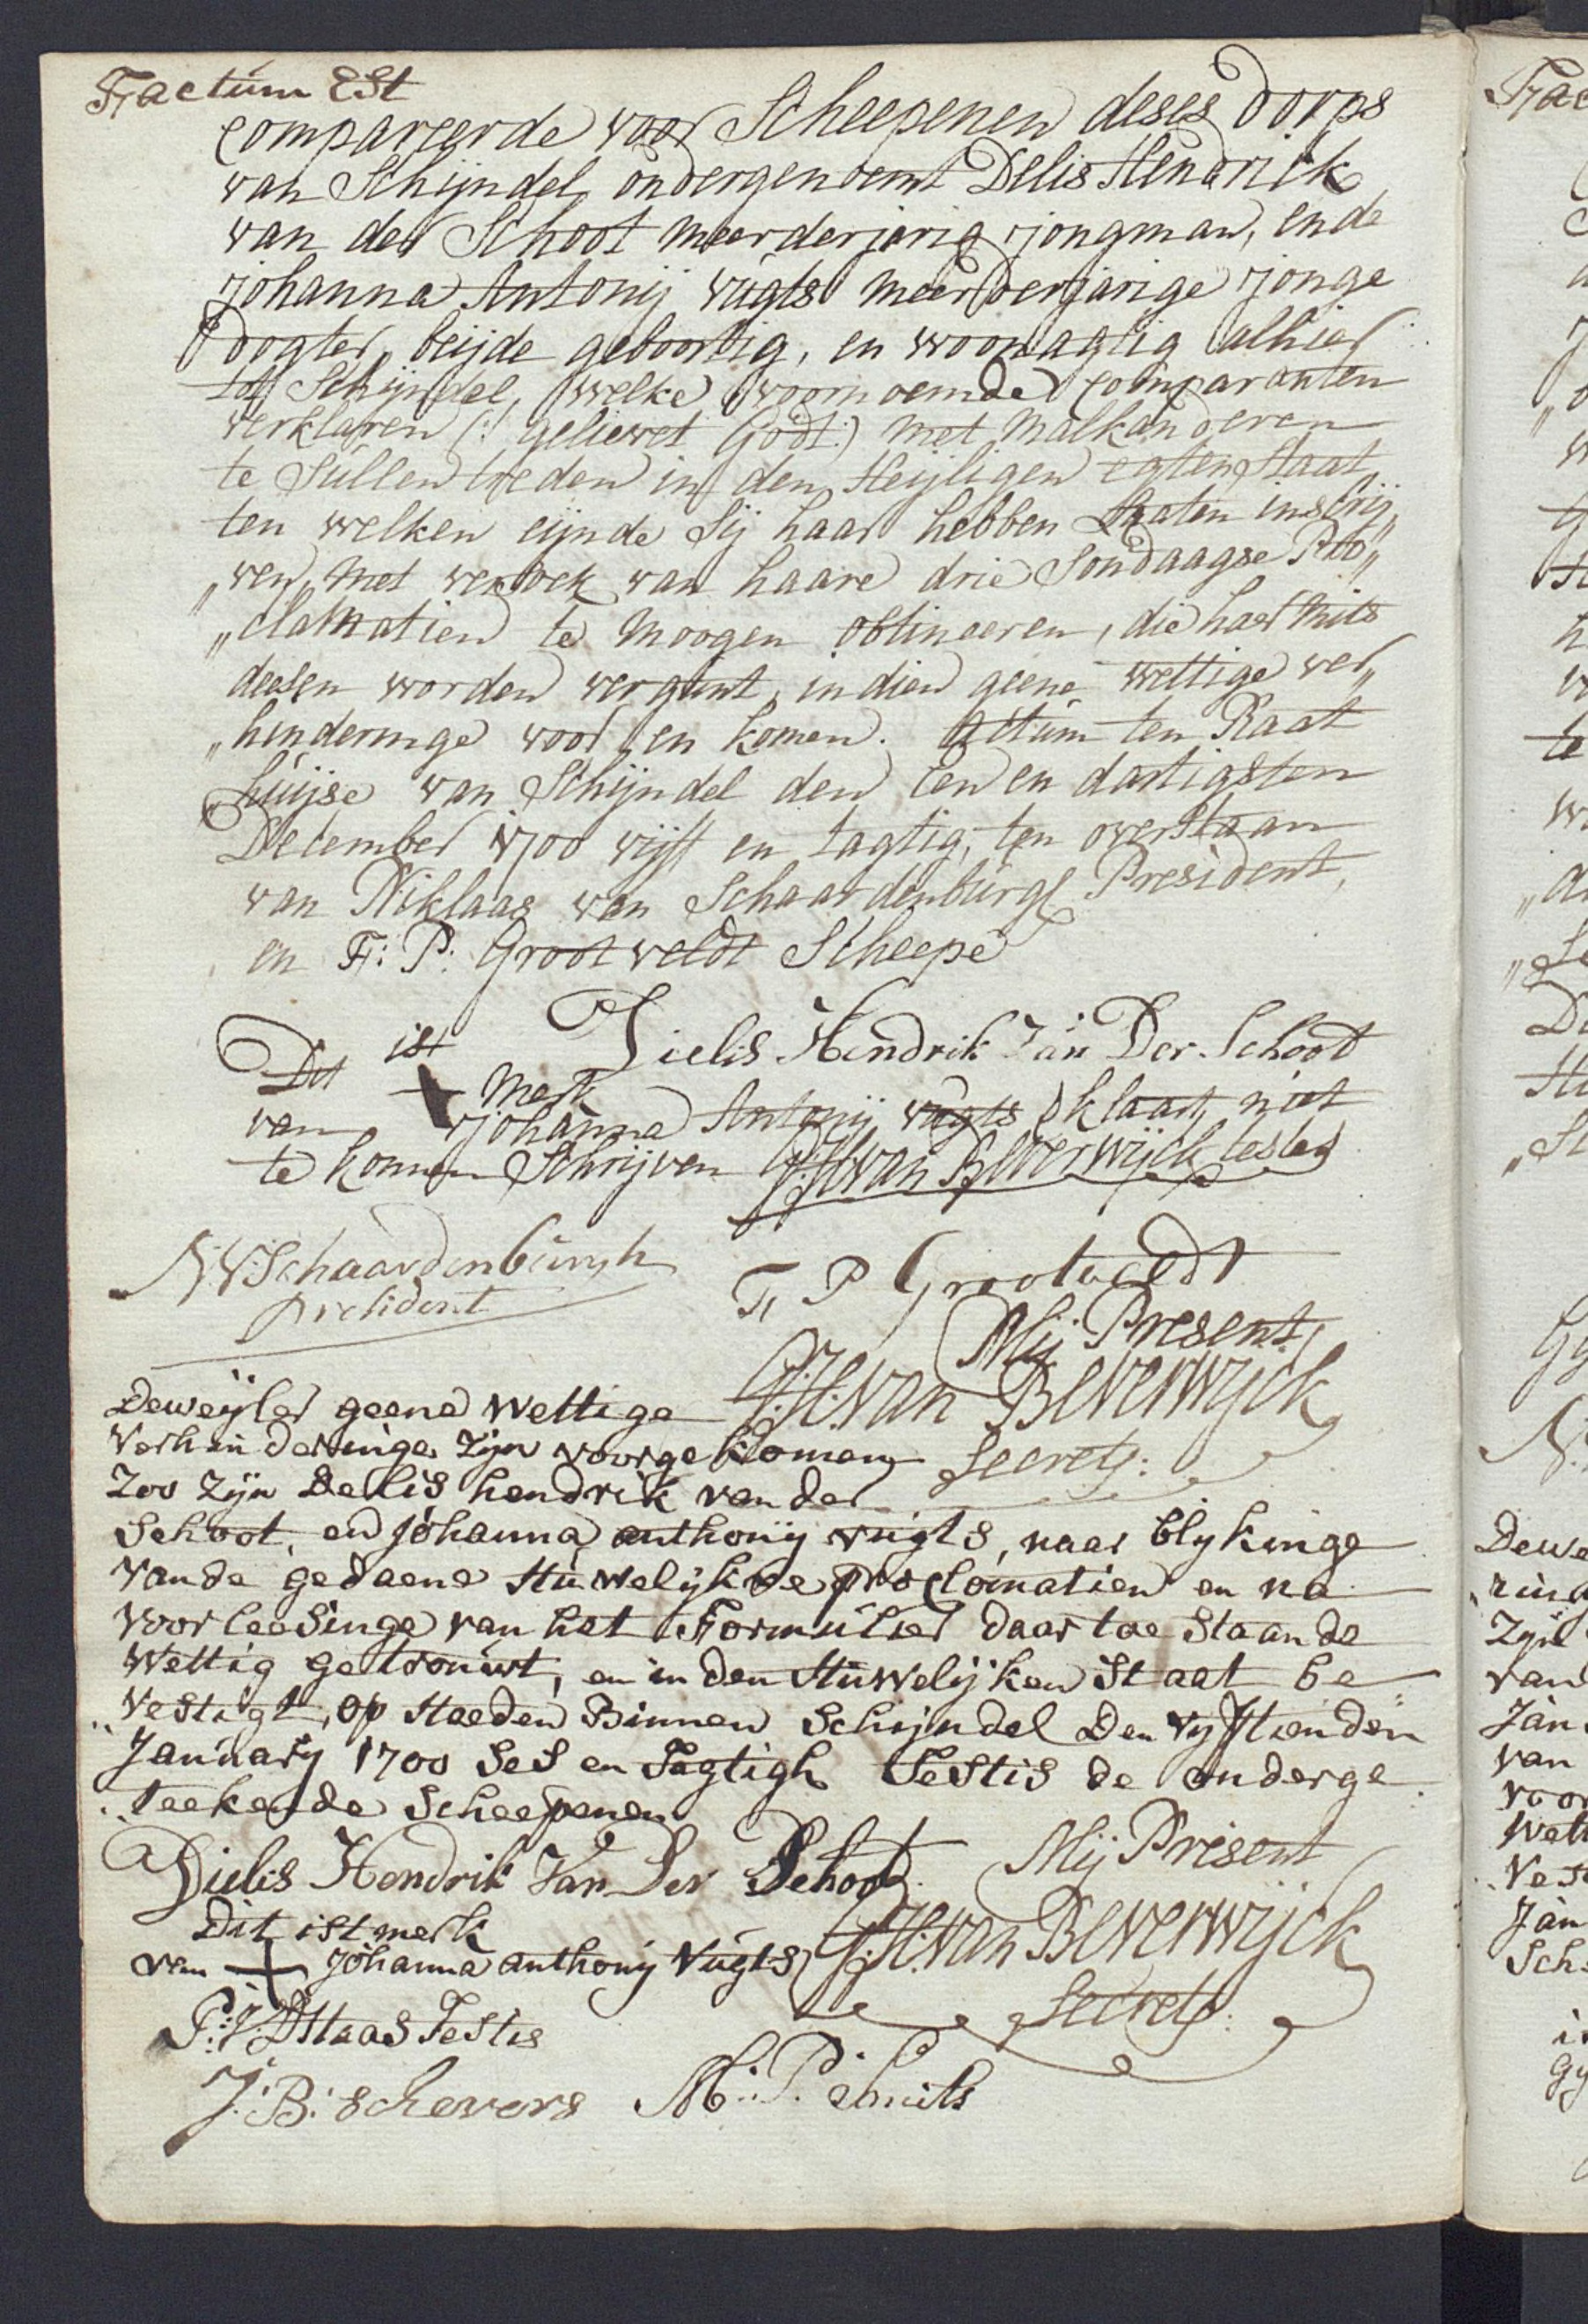 Factum Est
Compareerde voor Scheepenen deses dorps
van Schijndel, ondergenoemt Delis Hendrick
van der Schoot meerderjarig jongman, ende
Johanna Antonij Vugts meerderjarige jonge
dogter, beijde geboortig, en woonagtig alhier
tot Schijndel, welke voornoemde Comparanten
verklaren (: gelievet Godt:) met malkanderen
te sullen treeden in den Heijligen egten staat,
ten welken eijnde sij haar hebben laaten inschrij„
„ven, met versoek van haare drie Sondaagse Pro„
„clamatien te moogen obtineeren, die haar mits
deesen worden vergunt, indien geene wettige ver„
„hinderinge voor en komen. Actum ten Raat
„huijse van Schijndel den een en dartigsten
December 1700 vijff en tagtig, ten overstaan
van Niklaas van Schaardenburgh President,
en F: P: Grootveldt Scheepe
Dielis Hendrik Van Der Schoot
Dit ist
+ Merk
van Johanna Antonij Vugts verklaart niet
te konnen Schrijven G:H:van Beverwijck testes
N:V:Schaardenburgh
President
F P Grootveldt
Mij Present
G:H:van Beverwijck
Secrets:
Deweijler geene Wettige
Verhinderinge Zijn voorgekomen
Zoo Zijn Delis hendrik van der
Schoot, en Johanna anthonij vugts, naar blykinge
van de gedaene Huwelijkse proclomatien en na
Voorleesinge van het Formulier daar toe Staande
Wettig getrouwt, en in den Huwelijken Staat be
„Vestigt, op Haeden Binnen Schijndel Den Vyftienden
January 1700 Ses en Tagtigh Testis de onderge
„teekende Scheepenen
Dielis Hendrik Van Der Schoot
Mij Present
Dit ist merk
van + Johanna anthonij Vugts
G:H:van Beverwijck
Secrets:
Testis
J:B: schevers M: P. Smits